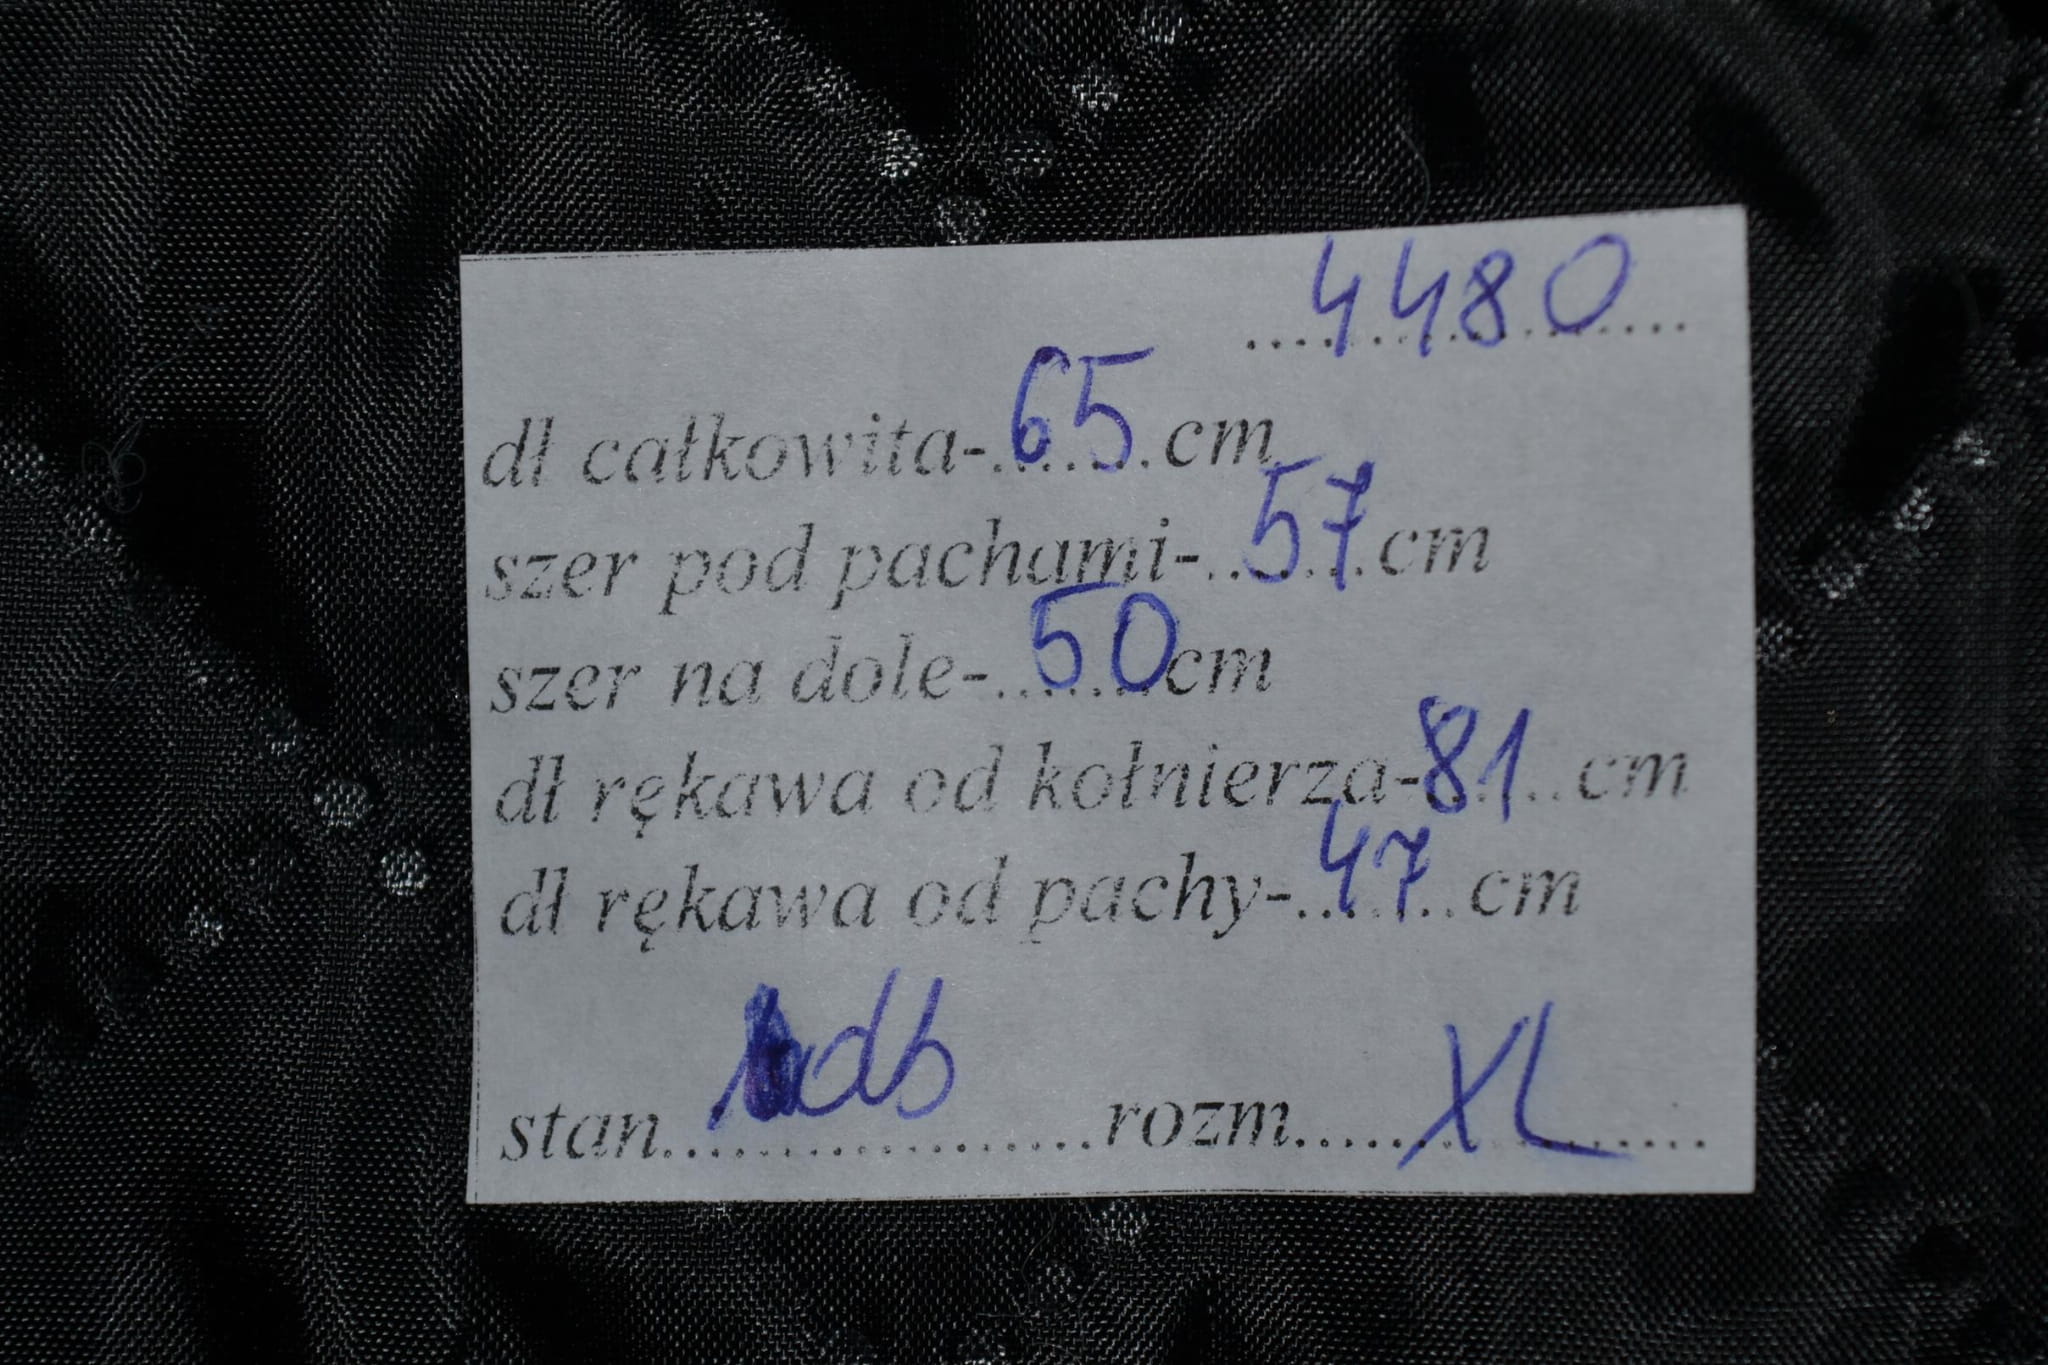 4480
dł całkowita-65 cm
szer pod pachami-57 cm
szer na dole-50 cm
dł rękawa od kołnierza-81 cm
dł rękawa od pachy-47 cm
stan db rozm XL